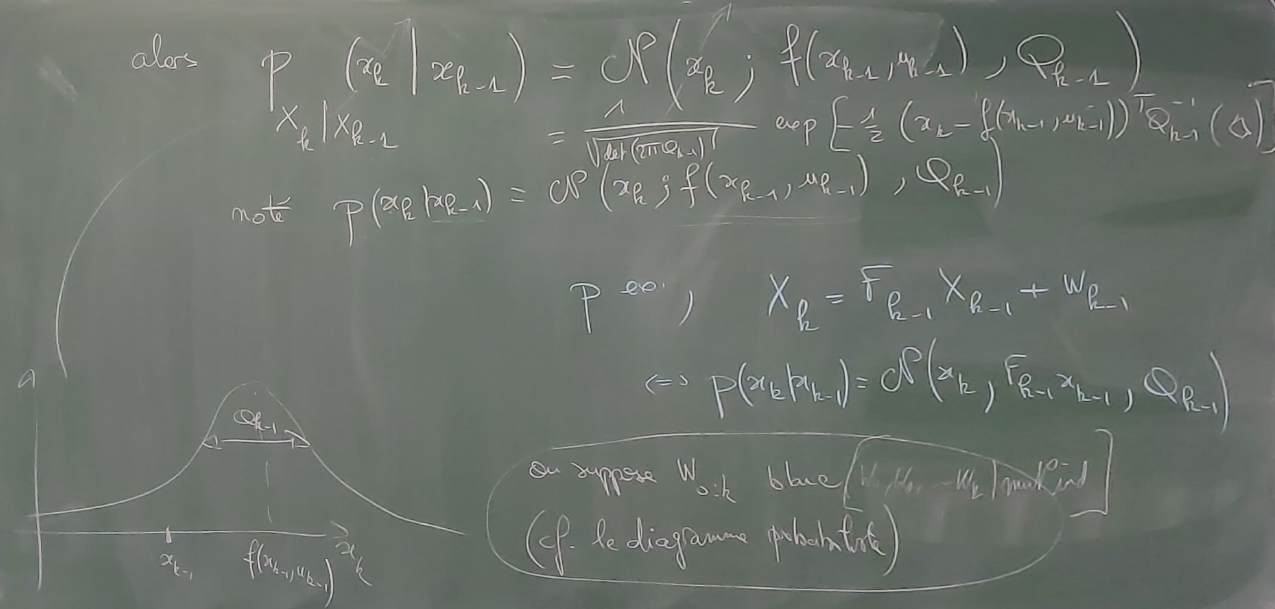 alors p_{X_k|X_{k-1}} (x_k | x_{k-1}) = 𝒩(x_k ; f(x_{k-1}, u_{k-1}), Q_{k-1})
= 1/√(det(2πQ_{k-1})) exp[-1/2 (x_k - f(x_{k-1}, u_{k-1}))^T Q_{k-1}^{-1} (Δ)]
noté p(x_k|x_{k-1}) = 𝒩(x_k ; f(x_{k-1}, u_{k-1}), Q_{k-1})
p ex., X_k = F_{k-1} X_{k-1} + W_{k-1}
<=> p(x_k|x_{k-1}) = 𝒩(x_k, F_{k-1} x_{k-1}, Q_{k-1})
Q_{k-1}
x_{k-1} f(x_{k-1}, u_{k-1}) x_k
on suppose W_{0:k} blanc [W_k | mut ind]
(cf. le diagramme probabiliste)